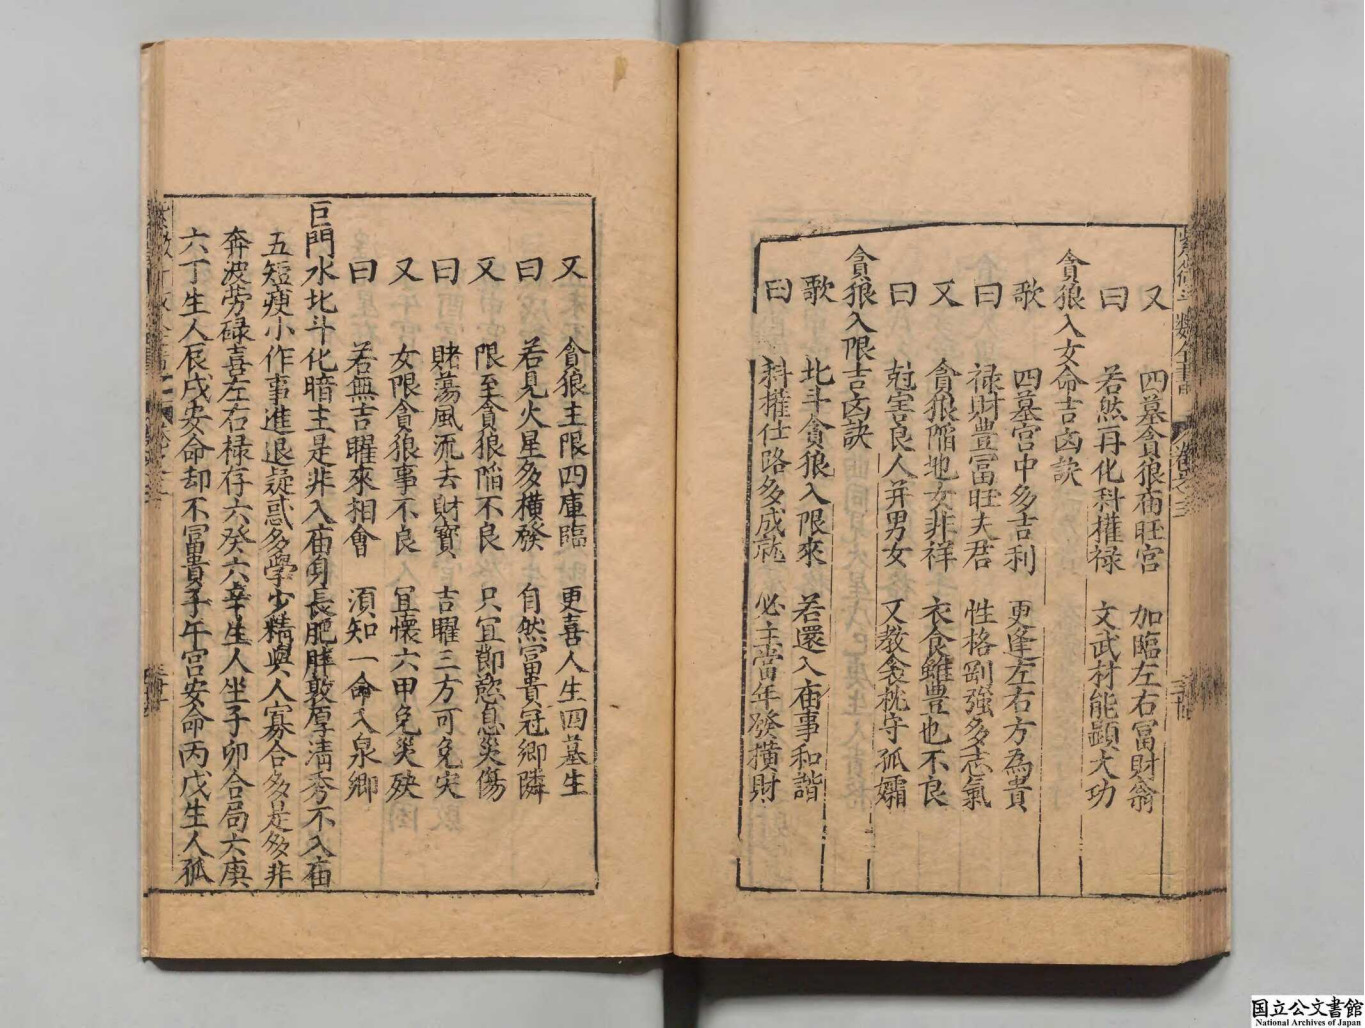 又　四墓貪狼庙旺宮　加臨左右富財翁
曰　若然再化科權禄　文武材能顕大功
貪狼入女命吉凶訣
歌　四墓宮中多吉利　更逢左右方為貴
曰　禄財豊富旺夫君　性格剛強多志氣
又　貪狼陥地女非祥　衣食雖豊也不良
曰　尅害良人并男女　又教衾枕守孤孀
貪狼入限吉凶訣
歌　北斗貪狼入限來　若還入庙事和諧
曰　科權仕路多成就　必主當年發横財
又　貪狼主限四庫臨　更喜人生四墓生
曰　若見火星多横發　自然富貴冠鄉隣
又　限至貪狼陥不良　只宜節慾息災傷
曰　賭蕩風流去財寳　吉曜三方可免灾
又　女限貪狼事不良　宜懷六甲免災殃
曰　若無吉曜來相會　須知一命入泉鄉
巨門水北斗化暗主是非入庙身長肥胖敦厚清秀不入庙
五短瘦小作事進退疑惑多學少精與人寡合多是多非
奔波劳碌喜左右禄存六癸六辛生人坐子卯合局六庚
六丁生人辰戌安命却不富貴子午宮安命丙戊生人孤
国立公文書館
National Archives of Japan